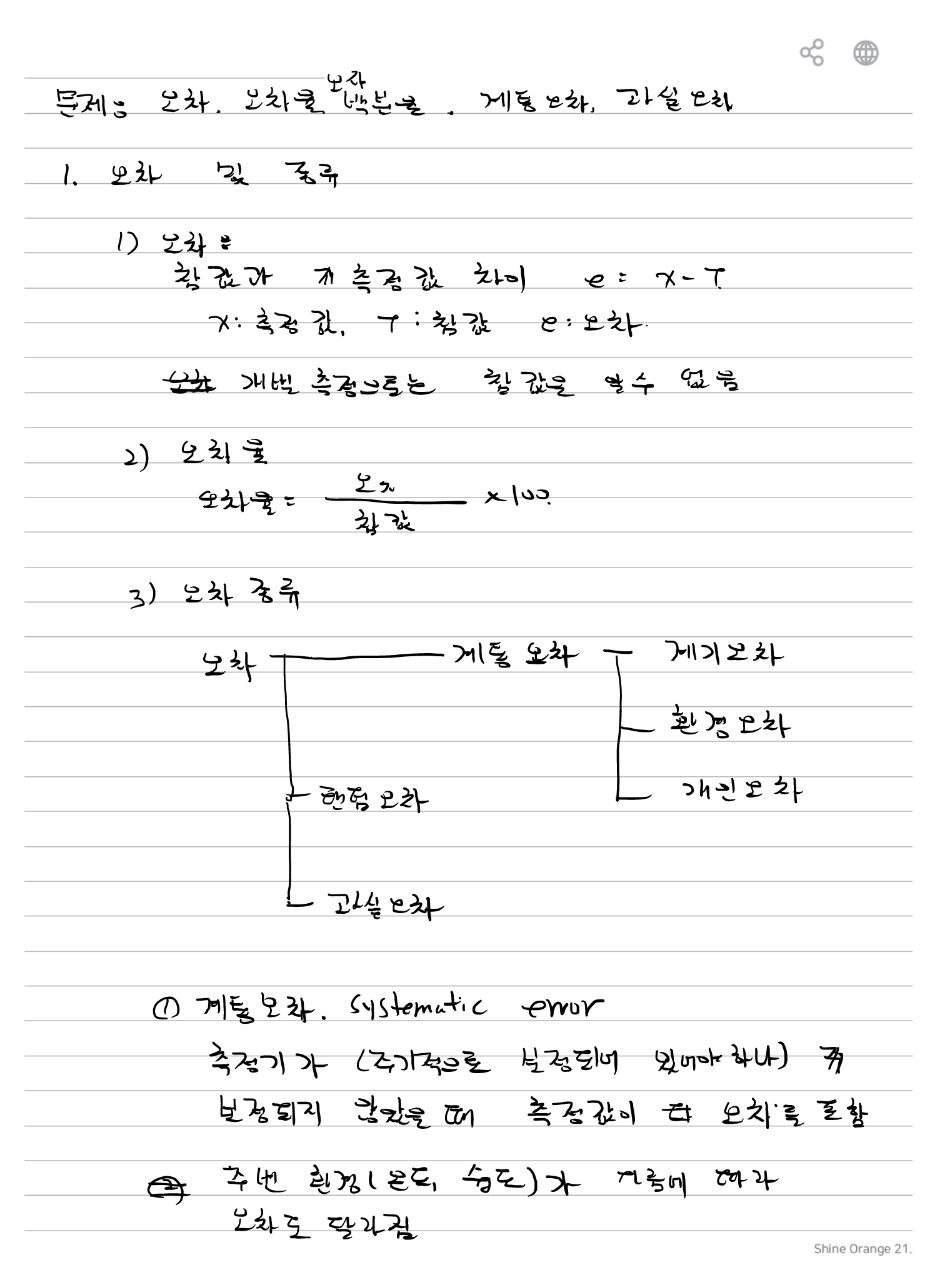 오차
문제: 오차. 오차율 백분율. 계통오차, 과실오차
1. 오차 및 종류
1) 오차:
참값과 측정값 차이 e = x - T
x: 측정값, T: 참값 e: 오차.
개별 측정으로는 참값을 알 수 없음
2) 오차율
오차율 = 오차 / 참값 × 100
3) 오차 종류
오차 계통 오차 계기오차
환경오차
랜덤오차 개인오차
과실오차
① 계통오차. systematic error
측정기가 (주기적으로 보정되어 있어야 하나)
보정되지 않았을 때 측정값이 오차를 포함
주변 환경(온도, 습도)가 따라
오차도 달라짐
Shine Orange 21.